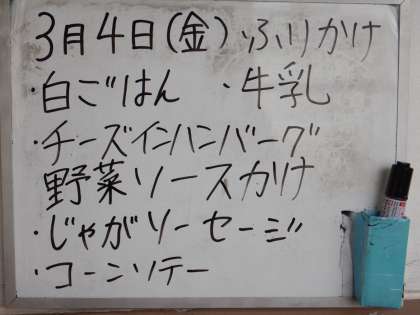 3月4日(金) ふりかけ
・白ごはん ・牛乳
・チーズインハンバーグ
野菜ソースカけ
・じゃがソーセージ
・コーンソテー